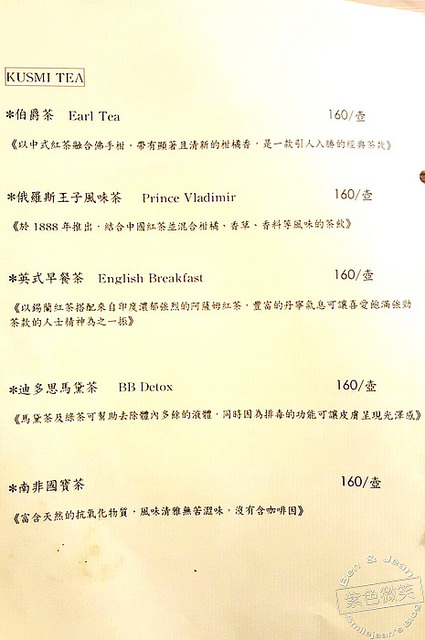 KUSMI TEA
*伯爵茶 Earl Tea 160/壺
《以中式紅茶融合佛手柑，帶有顯著且清新的柑橘香，是一款引人入勝的經典茶款》
*俄羅斯王子風味茶 Prince Vladimir 160/壺
《於 1888 年推出，結合中國紅茶並混合柑橘、香草、香料等風味的茶飲》
*英式早餐茶 English Breakfast 160/壺
《以錫蘭紅茶搭配來自印度濃郁強烈的阿薩姆紅茶，豐富的丹寧氣息可讓喜愛飽滿強勁
茶款的人士精神為之一振》
*迪多思馬黛茶 BB Detox 160/壺
《馬黛茶及綠茶可幫助去除體內多餘的液體，同時因為排毒的功能可讓皮膚呈現光澤感》
*南非國寶茶 160/壺
《富含天然的抗氧化物質，風味清雅無苦澀味，沒有含咖啡因》
Ben & Jean
紫色微笑
smilejean's Blog